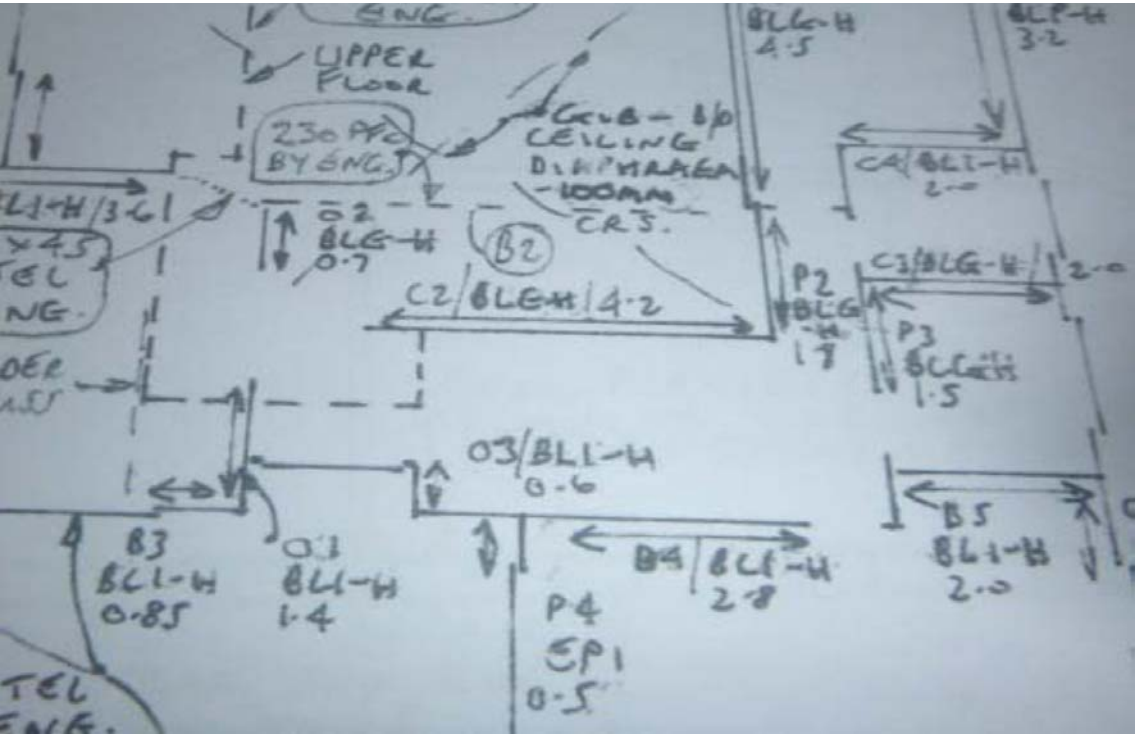 ENG.
UPPER
FLOOR
BLG-H
4.5
3.2
230 PFC
BY ENG.
CEILING
DIAPHRAGM
-100MM
CRS.
C4/BL1-H
2.0
BL1-H/3.6
02
BLG-H
0.7
B2
C2/BLG-H/4.2
P2
BLG
-H
1.8
C3/BLG-H/2.0
P3
BLG-H
1.5
x45
TEL
NG.
DER
03/BL1-H
0.6
B3
BL1-H
0.85
BL1-H
1.4
B4/BL1-H
2.8
B5
BL1-H
2.0
P4
EP1
0.5
TEL
ENG.